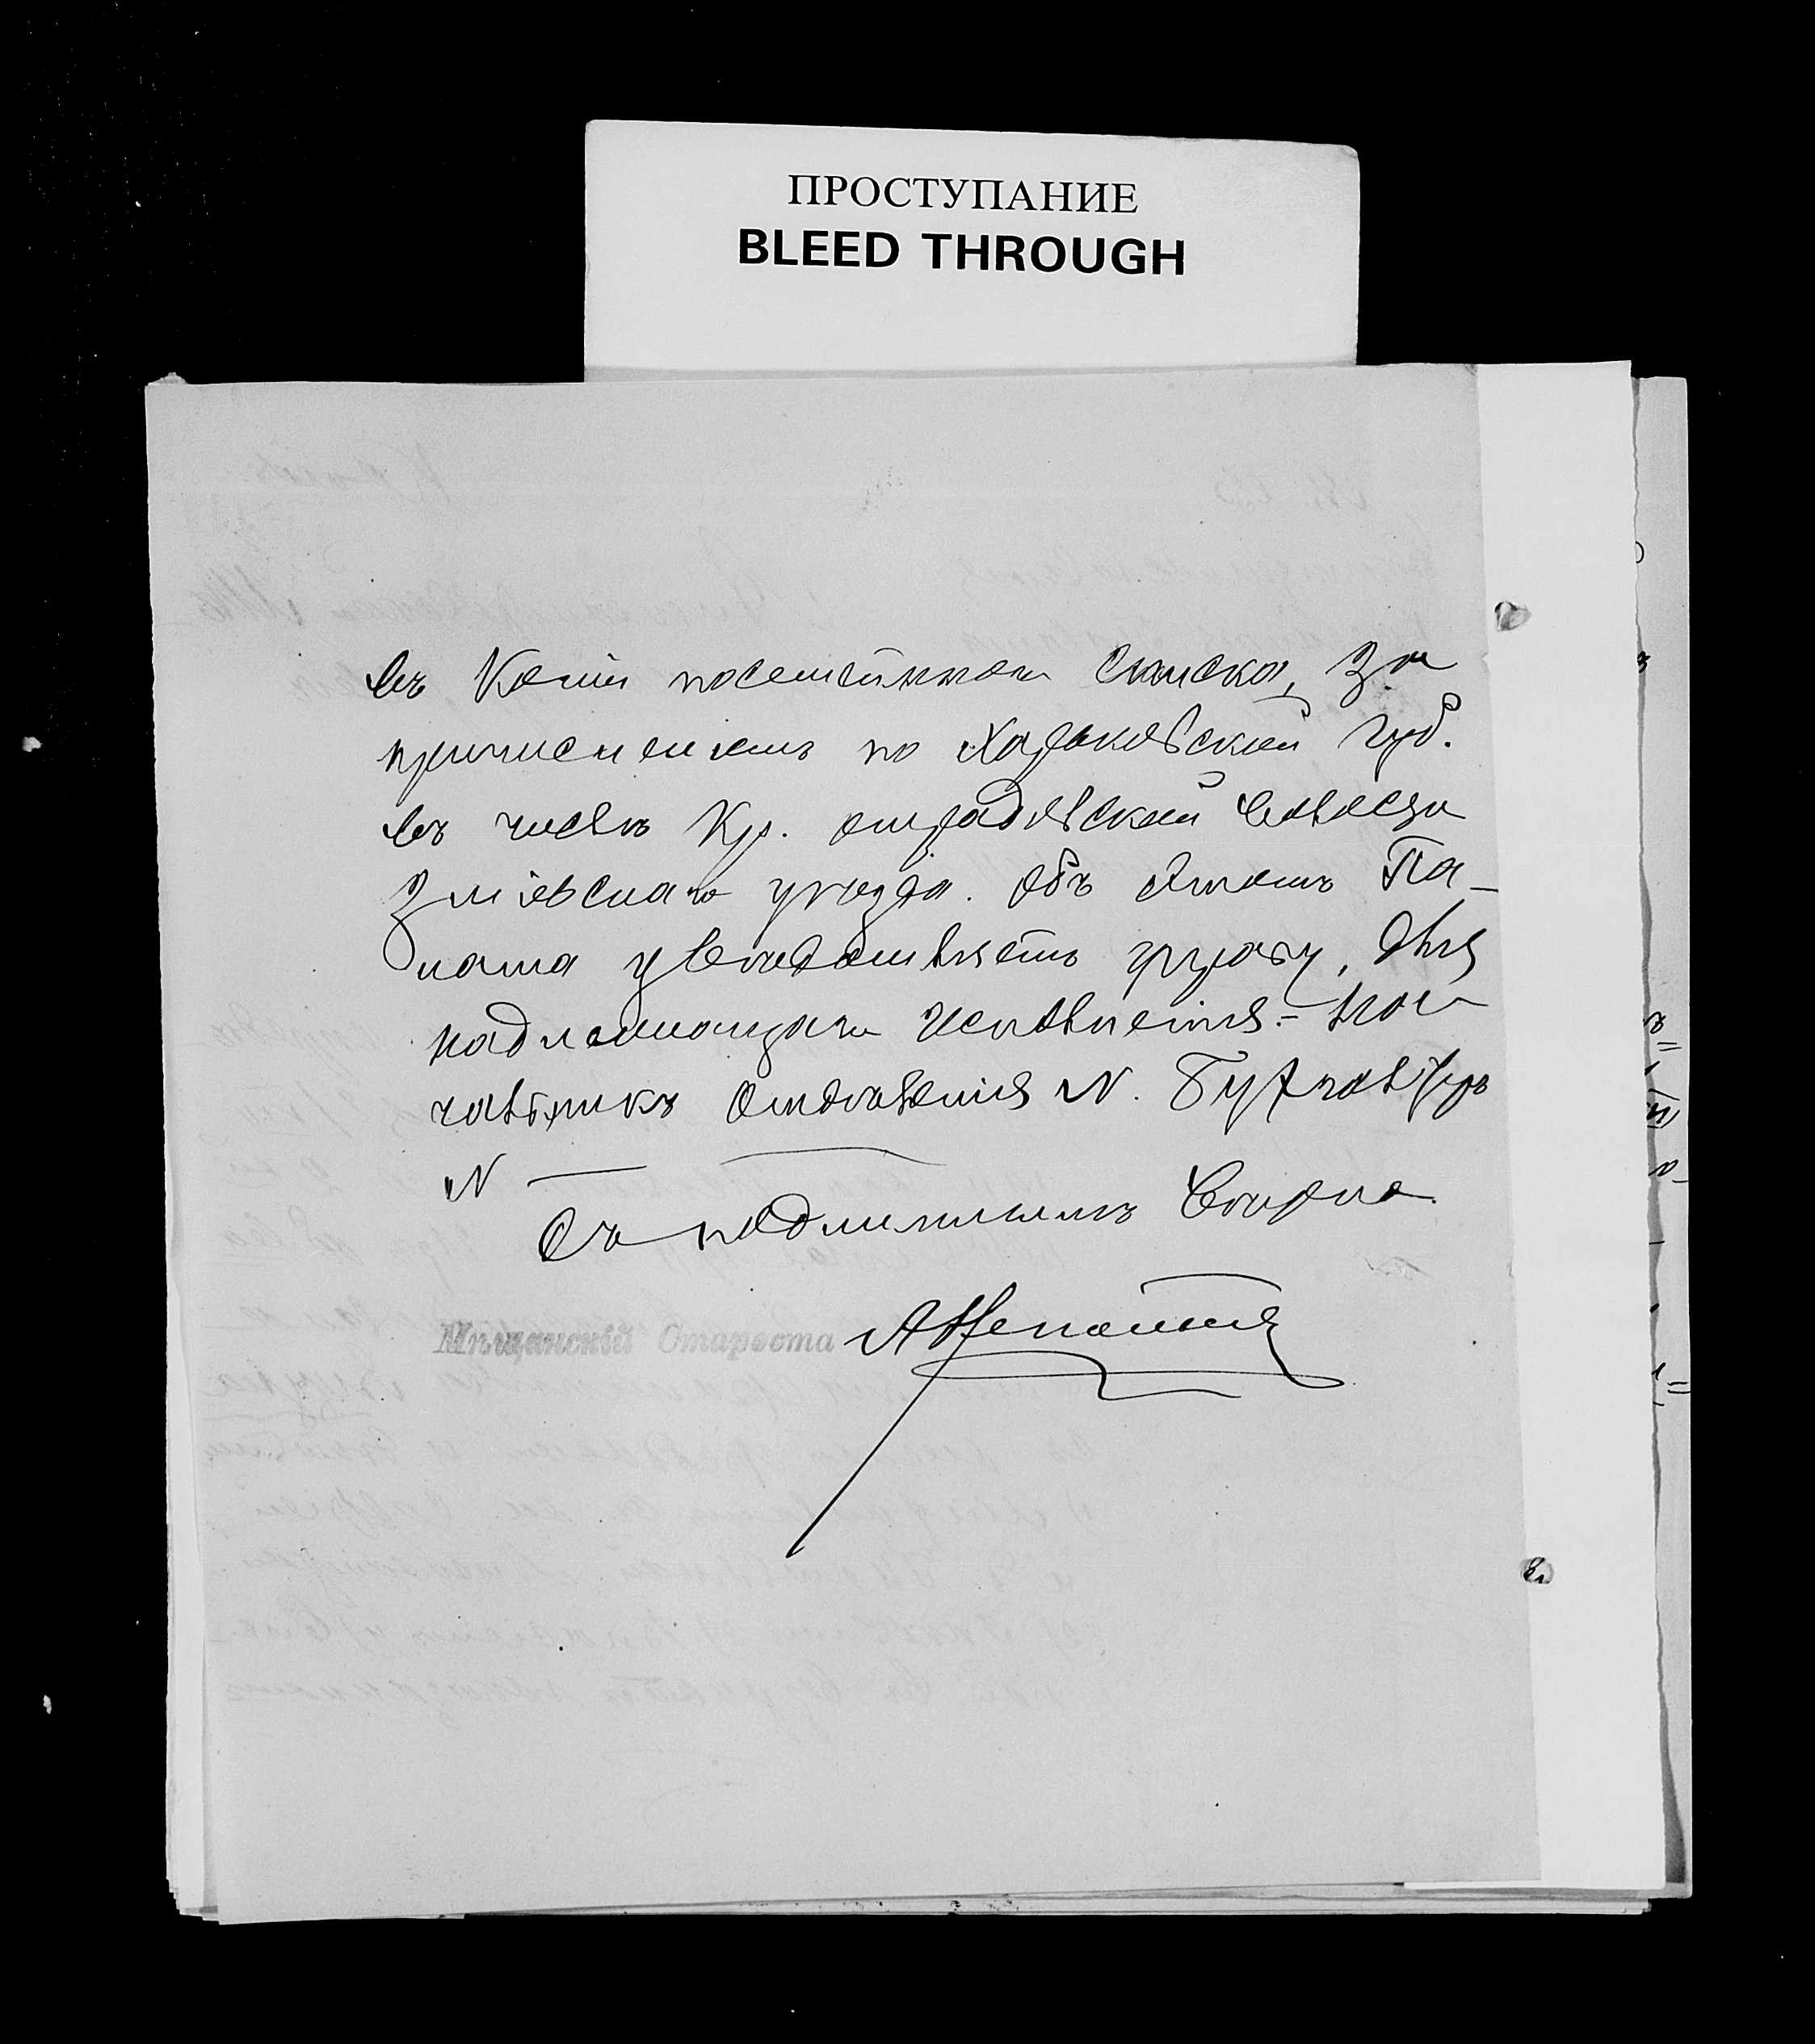 ПРОСТУПАНИЕ
BLEED THROUGH
въ Копіи посемейнаго списка, за
причисленіемъ по Харьковской губ.
въ число Кр. отрадовской волости
Зміевскаго уѣзда. Объ этомъ Па-
лата увѣдомляетъ управу, для
надлежащаго исполненія. - На-
чальникъ Отдѣленія N. Бухгалтеръ
N
Съ подлиннымъ вѣрно
Мѣщанскій Староста